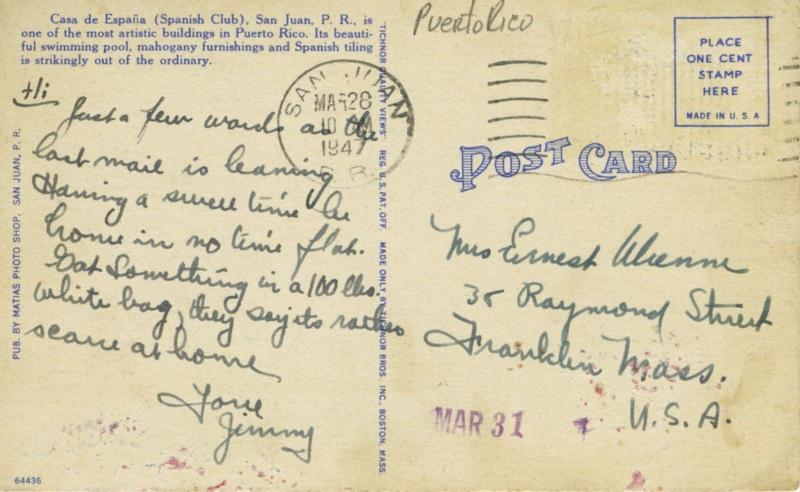 Casa de España (Spanish Club), San Juan, P. R., is
one of the most artistic buildings in Puerto Rico. Its beauti-
ful swimming pool, mahogany furnishings and Spanish tiling
is strikingly out of the ordinary.
Hi
Just a few words as the
last mail is leaving
Having a swell time be
home in no time flat.
Got Something in a 100 lbs.
white bag, they say its rather
scarce at home
Love
Jimmy
PUB. BY MATIAS PHOTO SHOP, SAN JUAN, P. R.
64436
"TICHNOR QUALITY VIEWS" REG. U. S. PAT. OFF. MADE ONLY BY TICHNOR BROS. INC., BOSTON, MASS.
SAN JUAN
MAR 28
10 AM
1947
P. R.
Puerto Rico
PLACE
ONE CENT
STAMP
HERE
MADE IN U. S. A
POST CARD
Mrs Ernest
35 Raymond Street
Franklin Mass.
U.S.A.
MAR 31